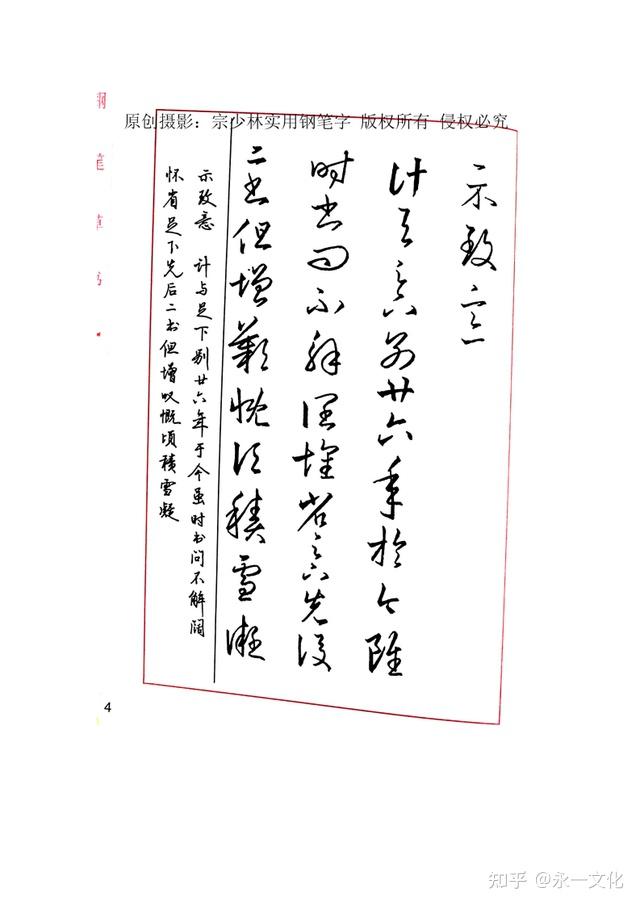 原创摄影：宗少林实用钢笔字 版权所有 侵权必究
示致意
计足下别廿六年於今雖
时书问不解阔怀省足下先後
二书但增歎慨顷積雪凝
示致意 计与足下别廿六年于今虽时书问不解阔
怀省足下先后二书但增叹慨顷積雪凝
钢笔草书
4
知乎 @永一文化